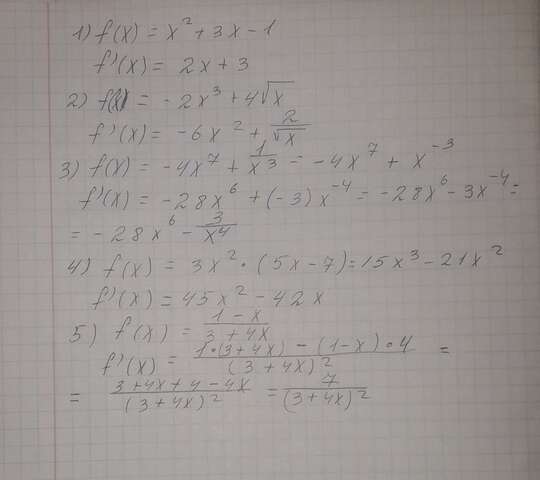 1) f(x) = x² + 3x - 1
f'(x) = 2x + 3
2) f(x) = - 2x³ + 4√x
f'(x) = -6x² + 2/√x
3) f(x) = -4x⁷ + 1/x³ = -4x⁷ + x⁻³
f'(x) = -28x⁶ + (-3)x⁻⁴ = -28x⁶ - 3x⁻⁴ =
= -28x⁶ - 3/x⁴
4) f(x) = 3x² • (5x - 7) = 15x³ - 21x²
f'(x) = 45x² - 42x
5) f(x) = (1 - x)/(3 + 4x)
f'(x) = (1•(3+4x) - (1-x)•4)/(3 + 4x)² =
= (3+4x+4-4x)/(3+4x)² = 7/(3+4x)²